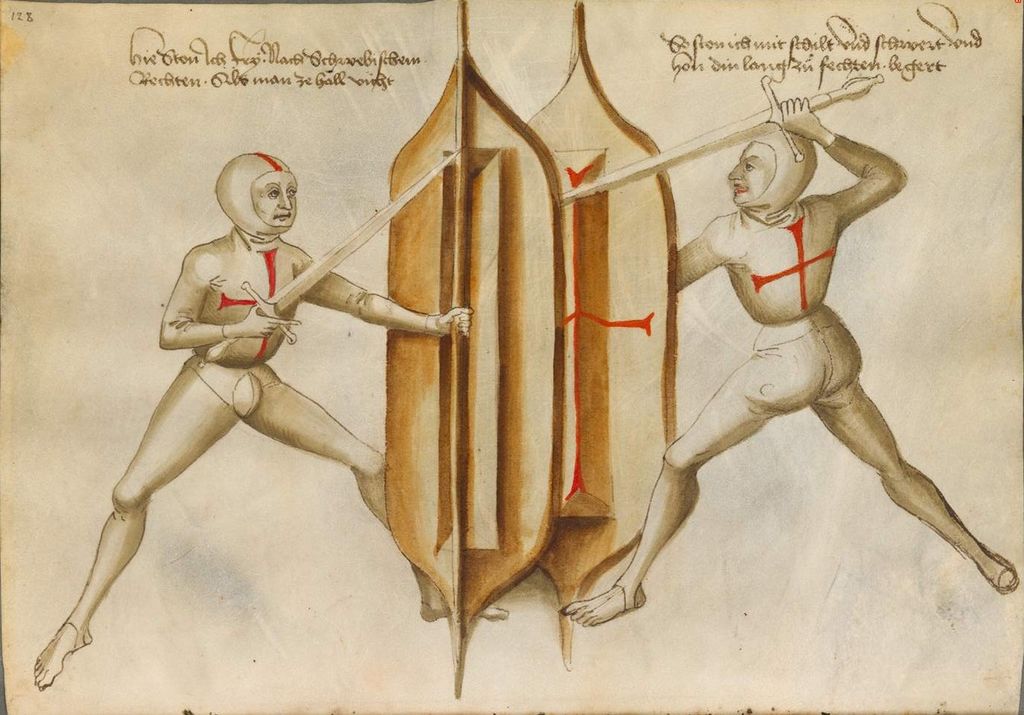 128
hie Sten Ich fry Nach Schwebischem
Rechten. Als man ze hall vicht
So sten ich mit schilt vnd schwert vnd
hon din lang zů fechten begert